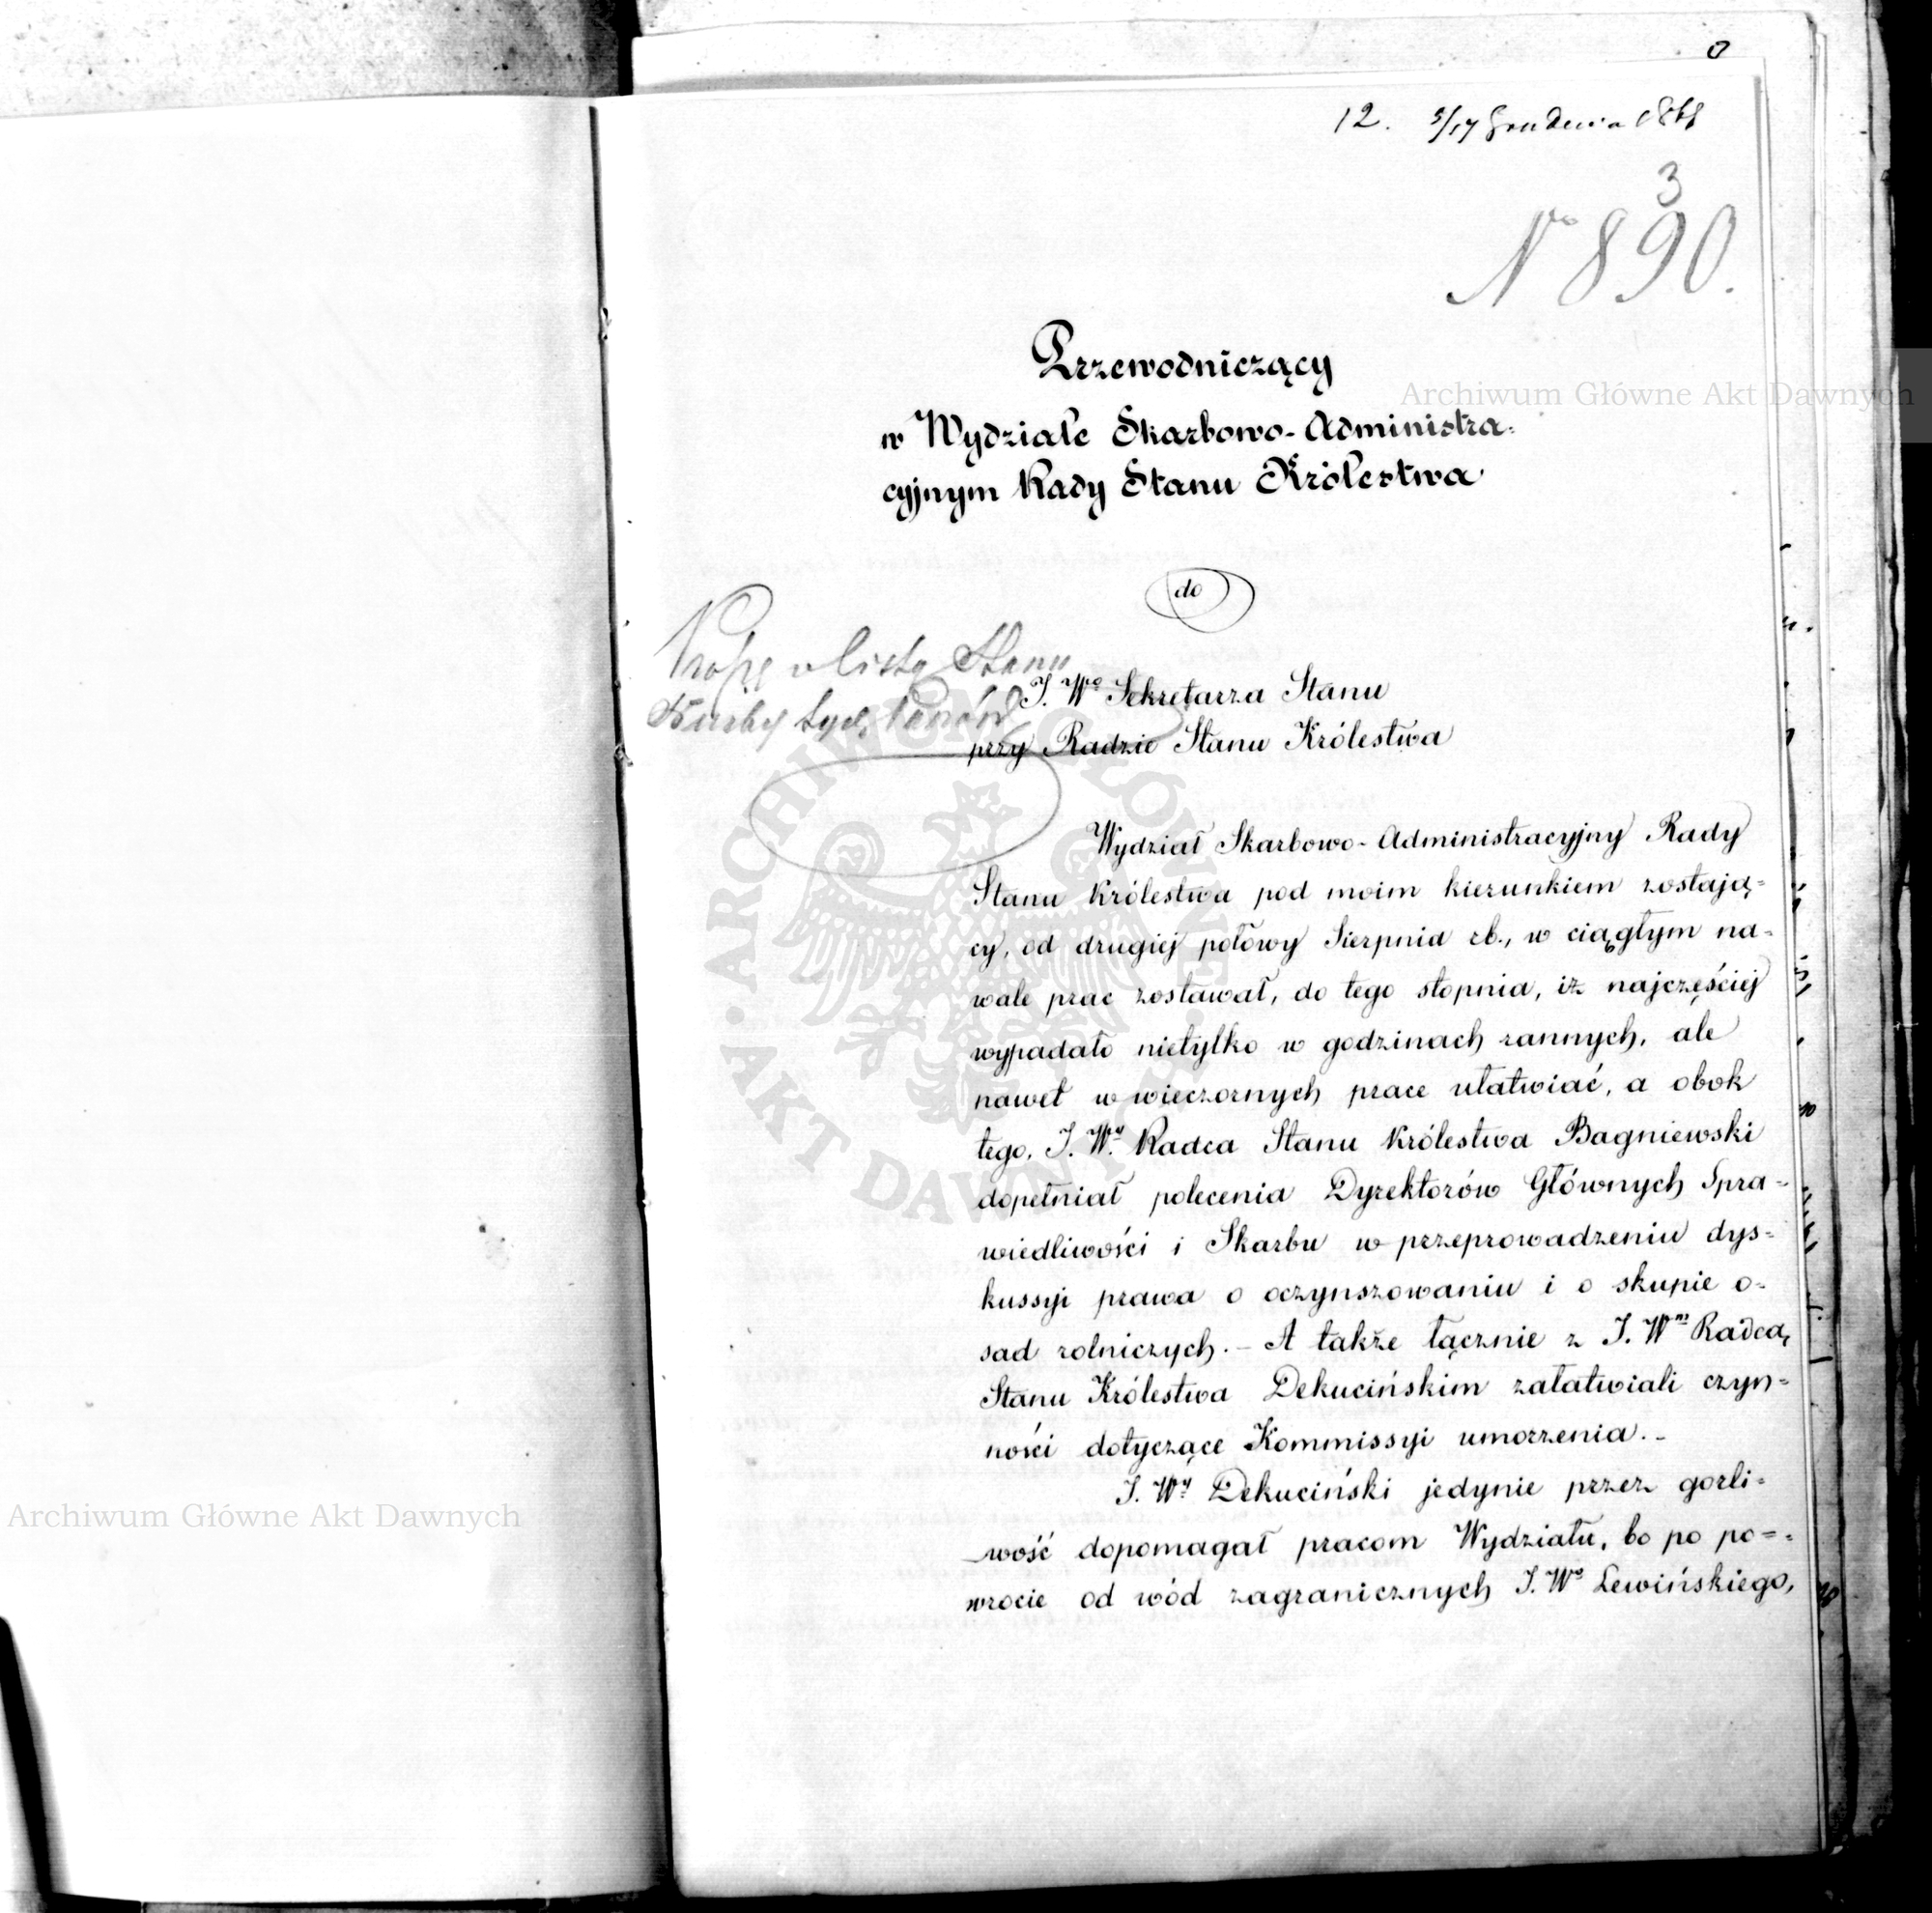 12. 5/17 Grudnia 186
3
No 890.
Przewodniczący
w Wydziale Skarbowo-Administra=
cyjnym Rady Stanu Królestwa
do
Stanu
J. Wo Sekretarza Stanu
przy Radzie Stanu Królestwa
Wydział Skarbowo-Administracyjny Rady
Stanu Królestwa pod moim kierunkiem zostają=
cy, od drugiej połowy Sierpnia rb., w ciągłym na=
wale prac zostawał, do tego stopnia, iż najczęściej
wypadało nietylko w godzinach rannych, ale
nawet w wieczornych prace ułatwiać, a obok
tego, J. Wy. Radca Stanu Królestwa Bagniewski
dopełniał polecenia Dyrektorów Głównych Spra=
wiedliwości i Skarbu w przeprowadzeniu dys=
kussyi prawa o oczynszowaniu i o skupie o=
sad rolniczych. – A także łącznie z J. Wm Radcą
Stanu Królestwa Dekucińskim załatwiali czyn=
ności dotyczące Kommissyi umorzenia. –
J. Wy. Dekuciński jedynie przez gorli=
wość dopomagał pracom Wydziału, bo po po=
wrocie od wód zagranicznych J. Wo Lewińskiego,
Archiwum Główne Akt Dawnych
Archiwum Główne Akt Dawnych
ARCHIWUM GŁÓWNE AKT DAWNYCH